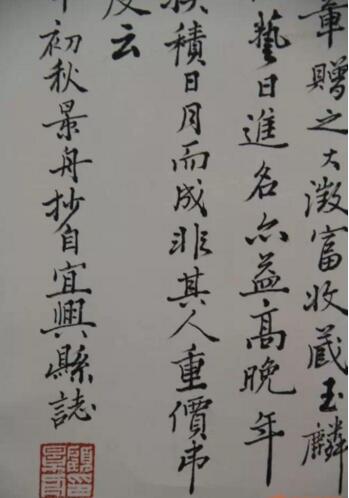 章贈之大澂富收藏玉麟
藝日進名亦益高晚年
積日月而成非其人重價弗
云
初秋景舟抄自宜興縣誌
顧景舟